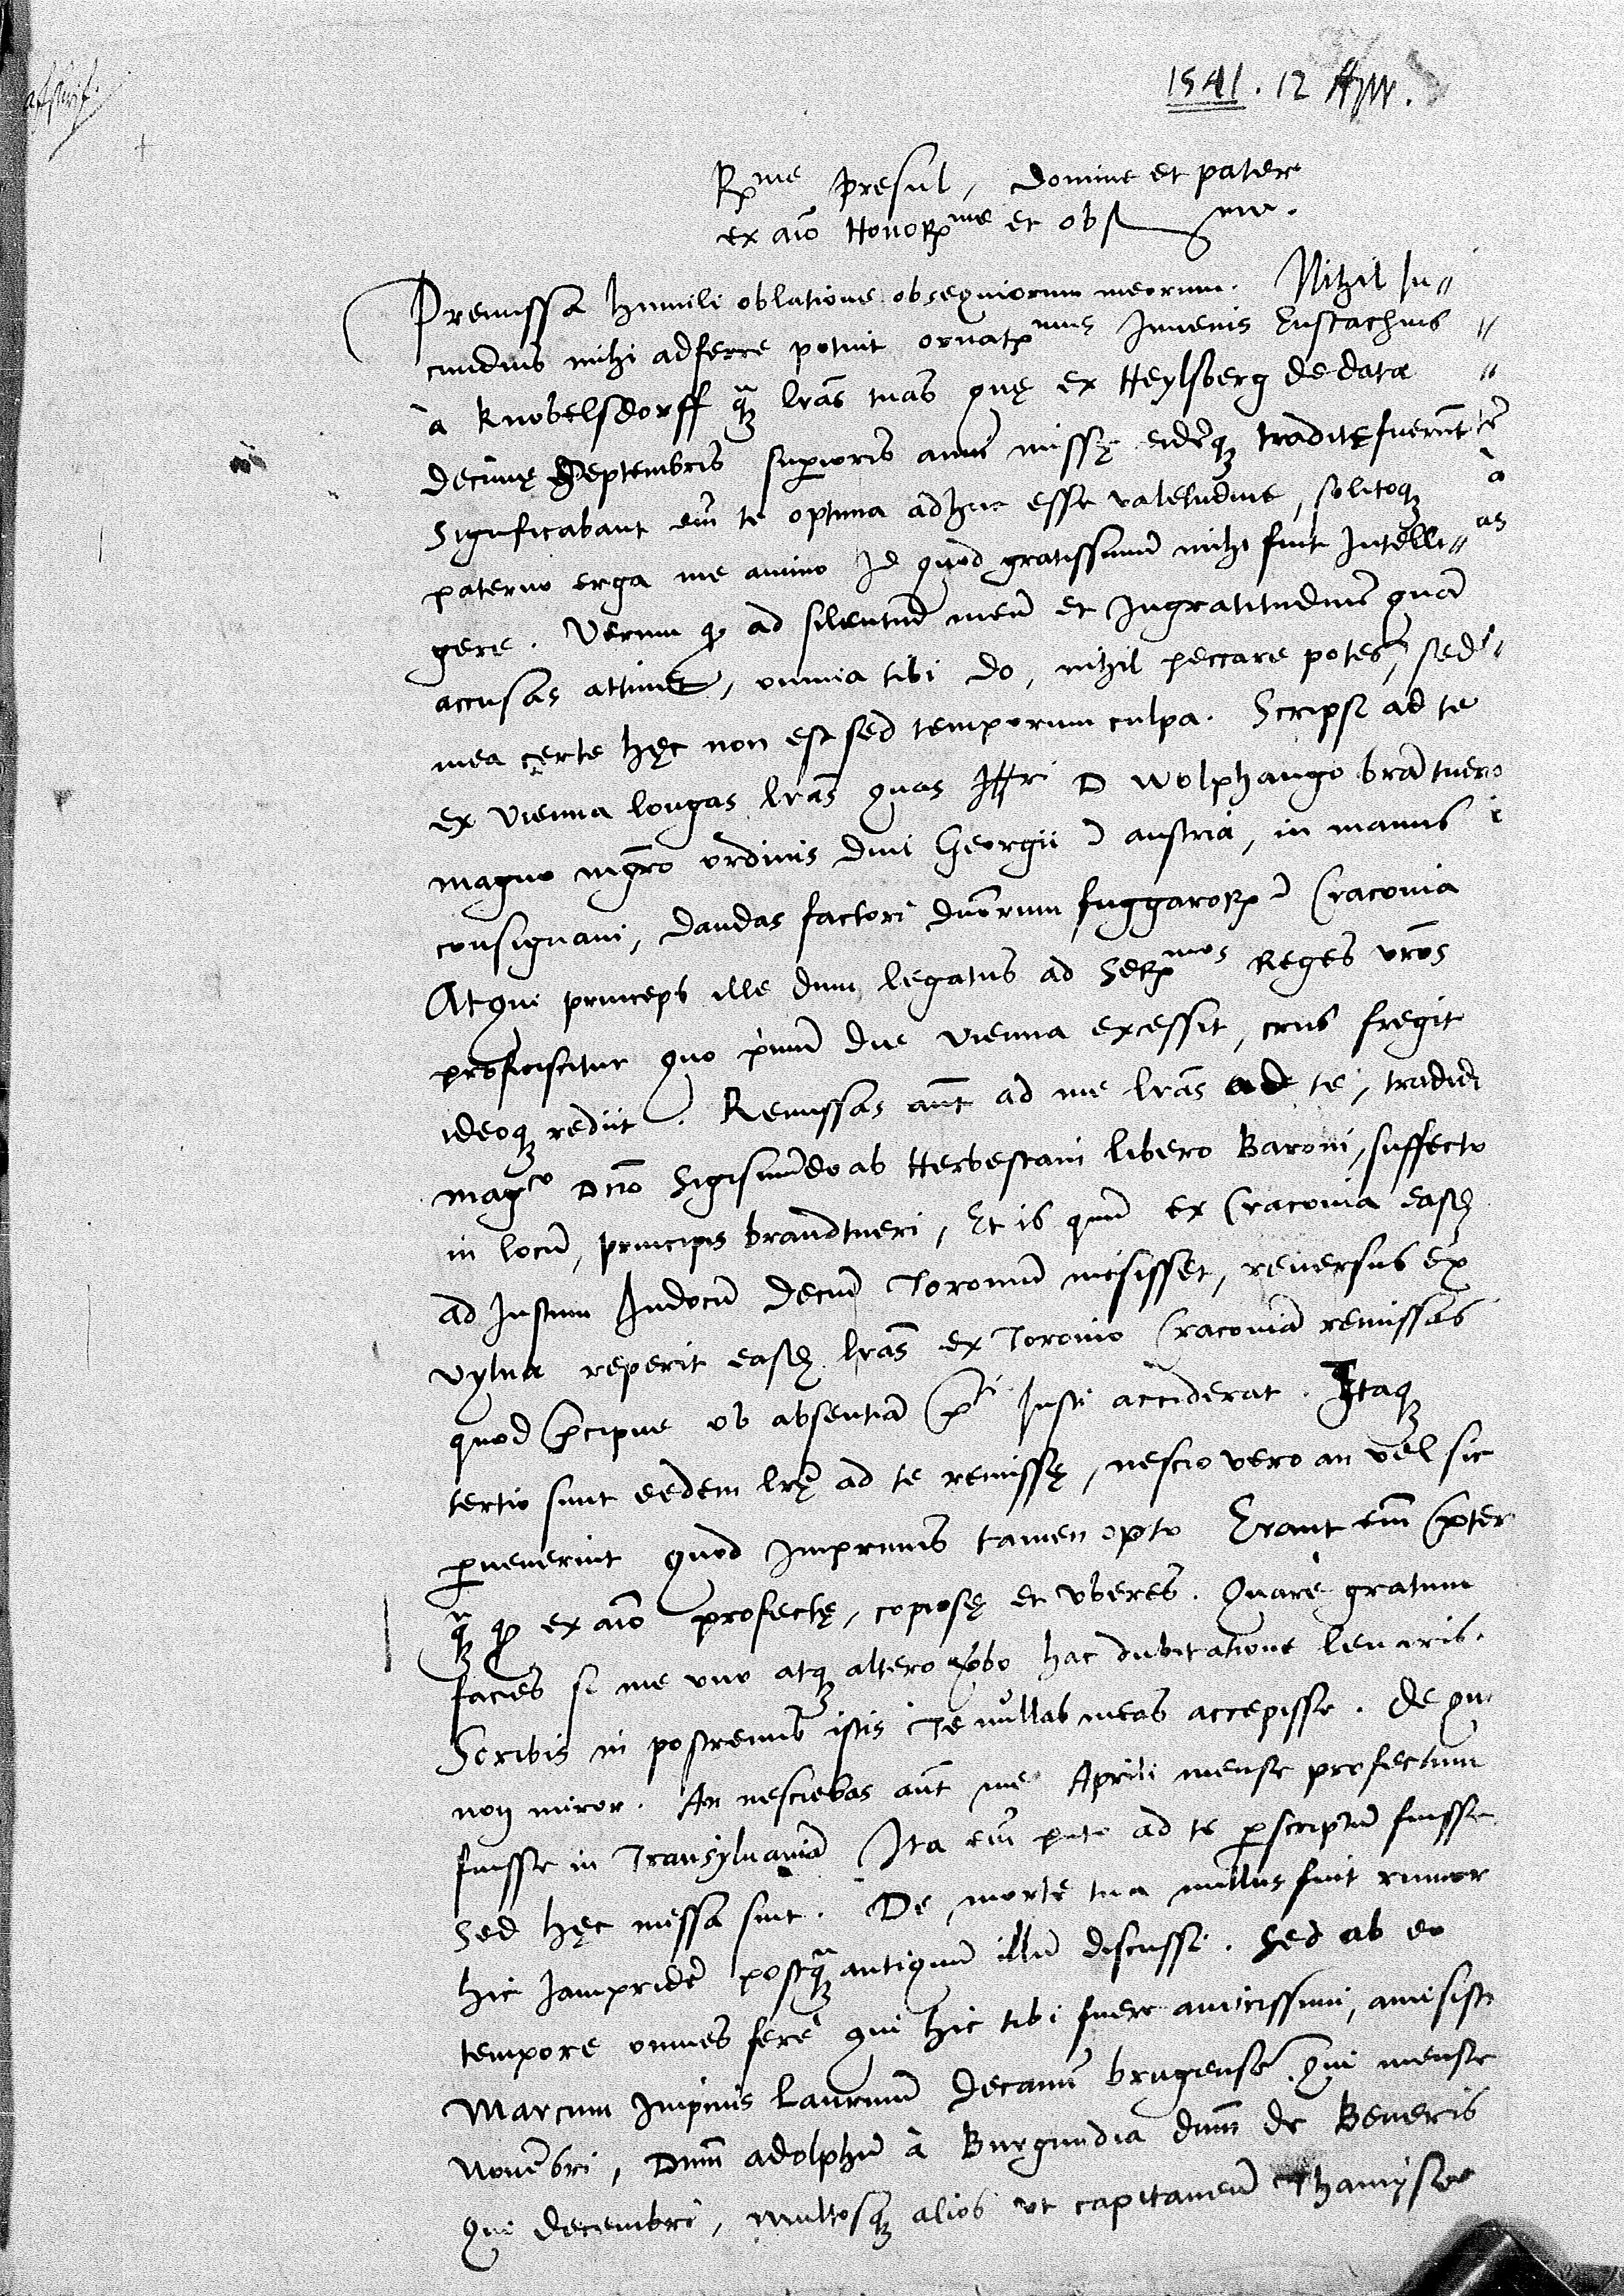 1541. 12 Apr.
R̃me Presul, Domine et pater
ex aīo Honorme et obs me.
Premissa humili oblatione obsequiorum meorum. Nihil Iu„
cundius mihi adferre potuit ornatmus Iuuenis Eustachius
à Knobelsdorff q̃ lrãs tuas quę ex Heylsberg de data
decimę Septembris superioris anni missę eidēq traditę fuerūt
Significabant eīm te optima adhuc esse valetudine, solitoq
paterno erga me animo Id quod gratissimū mihi fuit Intelli„
gere. Verum q ad silentiū meū et Ingratitudinē quā
accusas attinet, omnia tibi do, nihil peccare potes, sed
mea certe hęc non est sed temporum culpa. Scripsi ad te
ex Vienna longas lrãs quas Illri D Wolphango brātnero
magno mgrō ordinis diui Georgii ī austria, in manus
consignaui, dandas factori dnōrum fuggaror ī Cracouia
Atqui princeps ille dum legatus ad Sermos Reges vrōs
proficiscitur quo primū die Vienna excessit, crus fregit
ideoq rediit. Remissas aūt ad me lrãs ad te, tradidi
magco Dnō Sigismūdo ab Herbestain libero Baroni, suffecto
in locū, principis brandtneri, Et is quū ex Cracouia easd
ad Iustum Iudocū Deciū Toroniū misisset, reuersus ex
Vylna reperit easd lrãs ex Toronio Cracouiā remissas
quod p̄cipue ob absentiā p̄ti Iusti acciderat. Itaq
tertio sunt eedem lrę ad te remissę, nescio vero an vel sic
peruenerint quod Imprimis tamen opto Erant eīm p̄ter
q̃ q ex aīo profectę, copiosę et vberes. Quare gratum
facies si me vno atq altero vbo hac dubitatione leuaris.
Scribis in postremis istis Te nullas meas accepisse. De quo
non miror. An nesciebas aūt me Aprili mense profectum
fuisse in Transyluaniā Ita eīm puto ad te perscriptū fuisse
Sed hęc missa sint. De morte tua nullus fuit rumor
hic Iampridē postq̃ antiquū illū discussi. Sed ab eo
tempore omnes ferè qui hic tibi fuere amicissimi, amisisti
Marcum Inpīmis Laurinū Decanū brugensē qui mense
Nouēbri, Dnūm adolphū à Burgundia dnūm de Beueris
qui decembri, multosq alios vt capitaneū